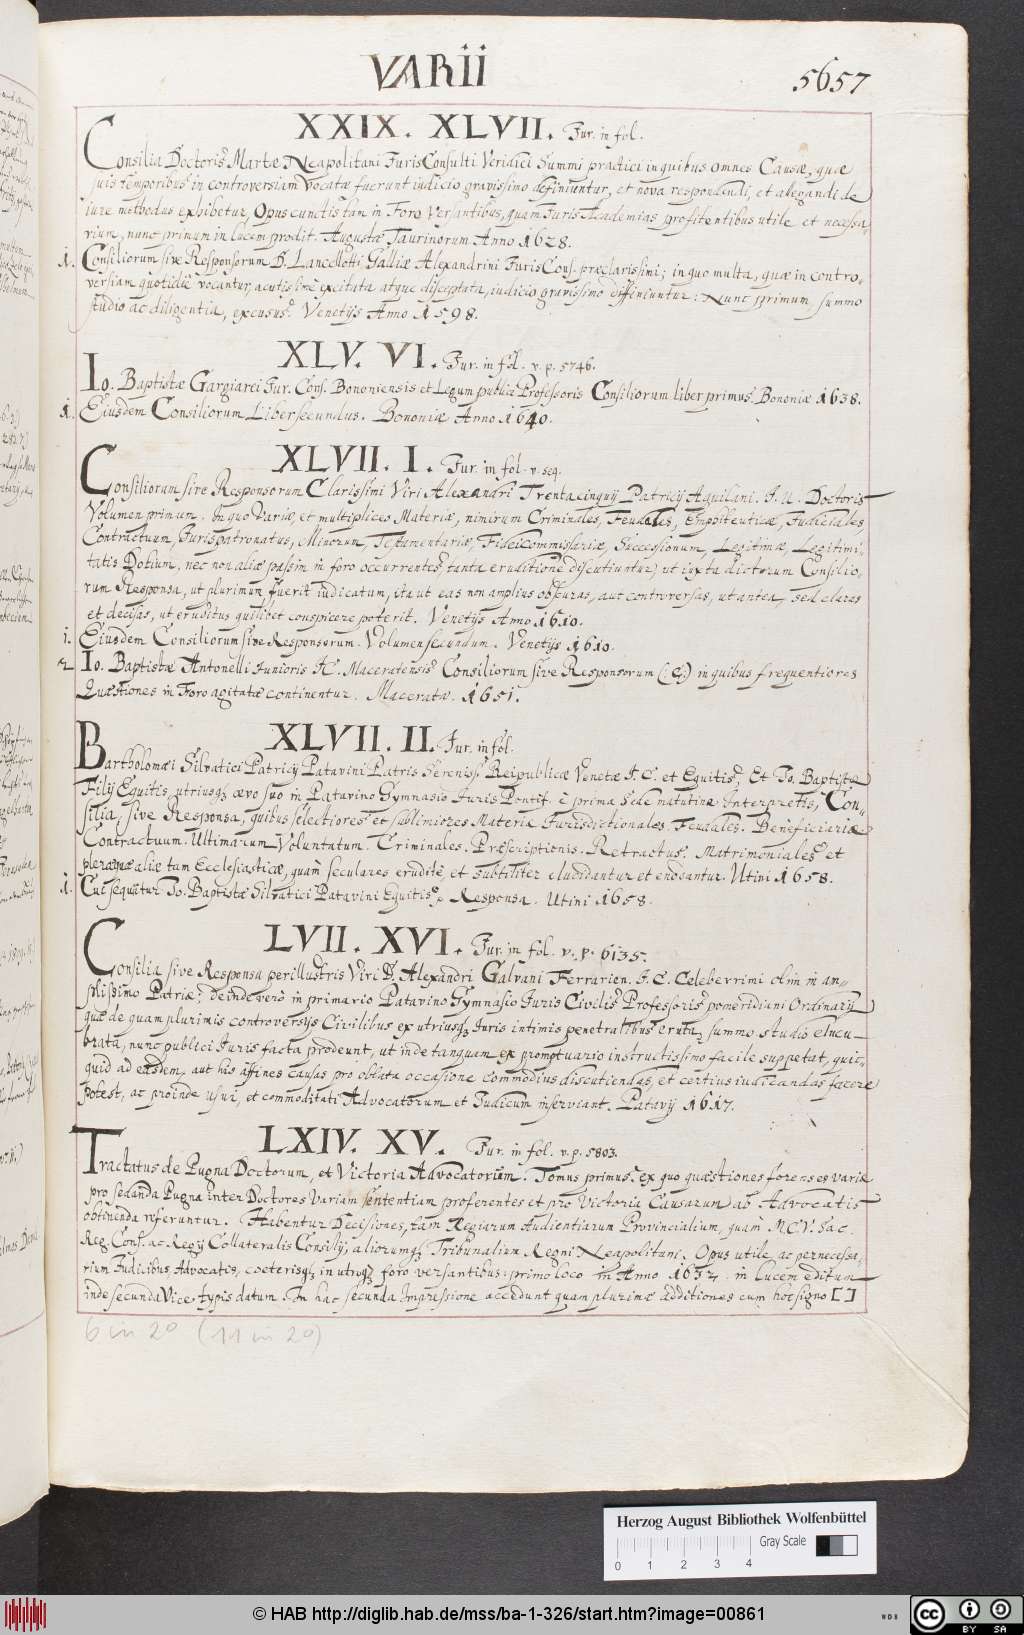 VARII
5657
XXIX. XLVII. Jur. in fol.
Consilia Doctoris Martæ Neapolitani JurisConsulti Veridici Summi practici in quibus omnes Causæ, quæ
suis temporibus in controversiam vocatæ fuerunt iudicio gravissimo definiuntur, et nova respondendi, et alegandi de
iure methodus exhibetur, Opus cunctis tam in Foro versantibus, quam Juris Academias profitentibus utile et necessa-
rium, nunc primum in lucem prodit. Augustæ Taurinorum Anno 1628.
1. Consiliorum sive Responsorum D. Lancellotti Galliæ Alexandrini JurisCons. præclarissimi; in quo multa, quæ in contro-
versiam quotidie vocantur, acutissime excitata atque disceptata, iudicio gravissimo diffiniuntur: Nunc primum summo
studio ac diligentia, excusus. Venetijs Anno 1598.
XLV. VI. Jur. in fol. v. p. 5746.
Io. Baptistæ Gargiarei Jur. Cons. Bononiensis et Legum publici Professoris Consiliorum liber primus Bononiæ 1638.
1. Eiusdem Consiliorum Liber secundus. Bononiæ Anno 1640.
XLVII. I. Jur. in fol. v. seq.
Consiliorum sive Responsorum Clarissimi Viri Alexandri Trentacinquij Patricij Aquilani. J. U. Doctoris
Volumen primum. In quo Variæ, et multiplices Materiæ, nimirum Criminales, Feudales, Emphiteuticæ, Judiciales,
Contractuum, Jurispatronatus, Minorum, Testamentariæ, Fideicommissariæ, Successionum, Legitimæ, Legitimi-
tatis Dotium, nec non aliæ passim in foro occurrentes, tanta eruditione discutiuntur, ut iuxta dictorum Consilio-
rum Responsa, ut plurimum fuerit iudicatum, ita ut eas non amplius obscuras, aut controversas, ut antea, sed claras
et decisas, ut eruditus quilibet conspicere poterit. Venetijs Anno 1610.
1. Eiusdem Consiliorum sive Responsorum. Volumen secundum. Venetijs 1610.
2 Io. Baptistæ Antonelli Junioris JC. Maceratensis Consiliorum sive Responsorum (:C:) in quibus frequentiores
Quæstiones in Foro agitatæ continentur. Maceratæ. 1651.
XLVII. II. Jur. in fol.
Bartholomæi Silvatici Patricij Patavini Patris Sereniss. Reipublicæ Venetæ J. C. et Equitis, Et Io. Baptistæ
Filij Equitis, utriusq; ævo suo in Patavino Gymnasio Juris Pontif. è prima Sede matutina Interpretis, Con-
silia, sive Responsa, quibus selectiores et sublimiores Materiæ Jurisdictionales. Feudales. Beneficiariæ.
Contractuum. Ultimarum Voluntatum. Criminales. Præscriptionis. Retractus. Matrimoniales et
pleræque aliæ tam Ecclesiasticæ, quàm seculares eruditè, et subtiliter eludidantur et enodantur. Utini 1658.
1. Cui sequuntur Io. Baptistæ Silvatici Patavini Equitis. Responsa. Utini 1658.
LVII. XVI. Jur. in fol. v. p. 6135.
Consilia sive Responsa perillustris Viri D. Alexandri Galvani Ferrarien. J. C. Celeberrimi olim in am-
plissimo Patriæ; deinde verò in primario Patavino Gymnasio Juris Civilis Professoris pomeridiani Ordinarij
quæ de quam plurimis controversijs Civilibus ex utriusq; Juris intimis penetralibus eruta, summo studio elucu-
brata, nunc publici Juris facta prodeunt, ut inde tanquam ex promptuario instructissimo facile suppetat, quic-
quid ad easdem, aut his affines causas pro oblata occasione commodius discutiendas, et certius iudicandas facere
potest, ac proinde usui, et commoditati Advocatorum et Judicum inserviant. Patavij 1617.
LXIV. XV. Jur. in fol. v. p. 5803.
Tractatus de Pugna Doctorum, et Victoria Advocatorum. Tomus primus, ex quo quæstiones forenses variæ
pro sedanda Pugna inter Doctores Variam sententiam proferentes et pro Victoria Causarum ab Advocatis
obtinenda referuntur. Habentur Decisiones, tam Regiarum Audientiarum Provincialium, quàm M.C.V. Sac.
Reg. Cons. ac Regij Collateralis Consilij, aliorumq; Tribunalium Regni Neapolitani. Opus utile, ac pernecessa-
rium Judicibus, Advocatis, coeterisq; in utroq; foro versantibus: primo loco in Anno 1632. in lucem editum
inde secunda Vice typis datum. In hac secunda Impressione accedunt quam plurimæ additiones cum hoc signo []
6 in 2° (11 in 2°)
Herzog August Bibliothek Wolfenbüttel
Gray Scale
0 1 2 3 4
© HAB http://diglib.hab.de/mss/ba-1-326/start.htm?image=00861
WDB
cc BY SA